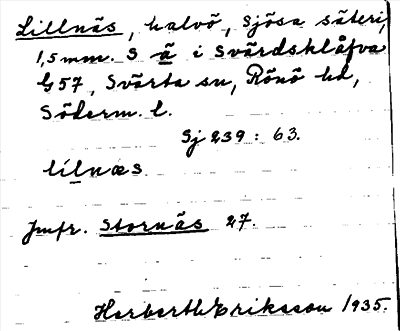 Lillnäs, halvö, Sjösa säteri,
1,5 mm. S ä i Svärdsklåfva
G 57, Svärta sn, Rönö hd,
Söderm. l.
Sj 239 : 63.
lílnæs
Jmfr. Stornäs 27.
Herbert Eriksson 1935.